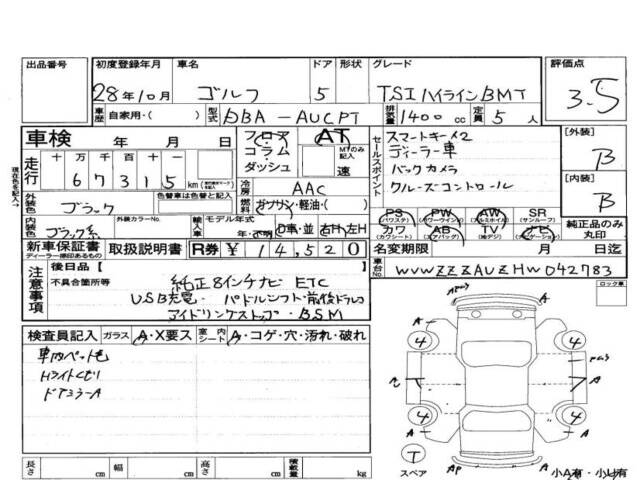 出品番号 初度登録年月 車名 ドア 形状 グレード 評価点
28年10月 ゴルフ 5 TSIハイラインBMT 3.5
車歴 自家用・( ) 型式 DBA-AUCPT 排気量 1400cc 定員 5人
車検 年 月 日 フロア コラム・ダッシュ AT MTのみ記入 速
走行 十万千百十 67315 km
冷房 AAC
燃料 ガソリン・軽油・( )
外装色 ブラック 色替車は色替と記入
内装色 ブラック系 外装カラーNo. 輸入車 モデル年式 年・不明 D車・並 右H・左H
新車保証書 ディーラー捺印あるもの 取扱説明書 R券 ¥14,520
セールスポイント
スマートキー×2
ディーラー車
バックカメラ
クルーズコントロール
[外装] B
[内装] B
PS (パワステ) PW (パワーウインド) AW (アルミホイル) SR (サンルーフ)
カワ (カワシート) AB (エアバッグ) TV (地デジ) ナビ (ナビゲーション)
純正品のみ丸印
名変期限 月 日迄
車台No. WVWZZZAUZHW042783
現在色を記入
ロック車
注意事項 後日品【 】
不具合箇所等 純正8インチナビ ETC
USB充電・パドルシフト・前後ドラレコ
アイドリングストップ・BSM
検査員記入 ガラス A・X要ス 室内シート A・コゲ・穴・汚れ・破れ
車内ペット毛
Hライトくもり
ドアミラーA
A
A
4 4
A A
4 4
A A
T
スペア
A A
小A有・小U有
長さ cm 幅 cm 高さ cm 積載量 kg